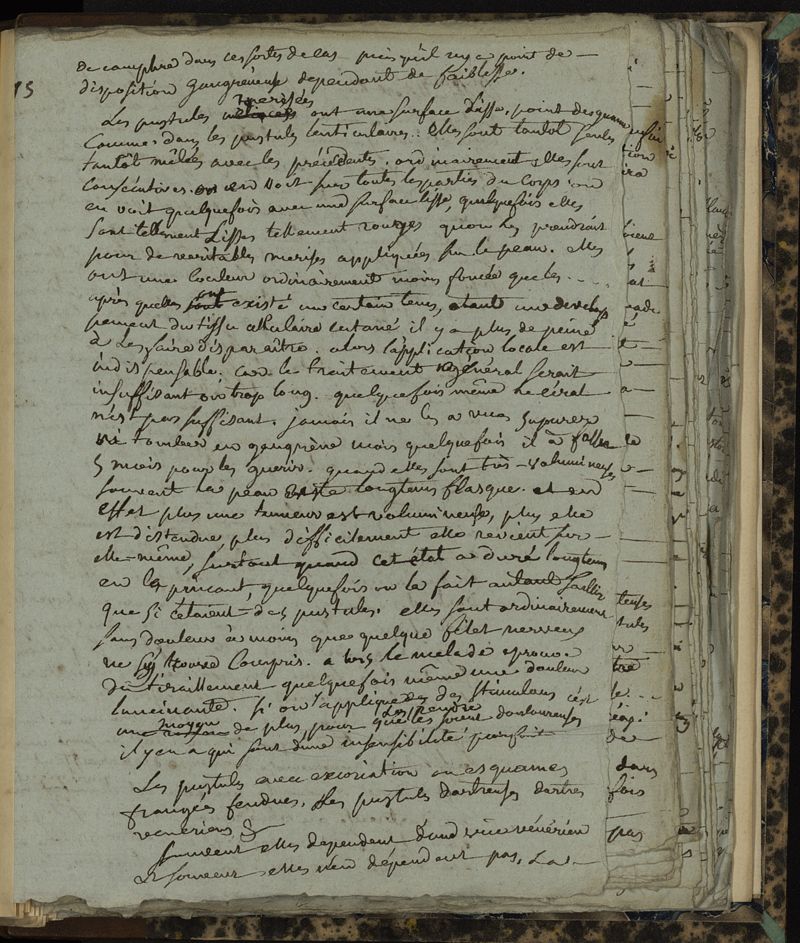 15
de camphre dans ces sortes de cas puisqu'il n'y a point de
disposition gangréneuse dependant de faiblesse.
Les pustules merisées ont une surface lisse, point desquam
comme dans les pustules lenticulaires. elles sont tantot seules
tantôt mêlées avec les précédentes. ordinairement elles sont
consécutives. on en voit sur toutes les parties du corps on
en voit quelquefois avec une surface lisse, quelquefois elles
sont tellement lisses tellement rouges qu'on les prendrait
pour de veritables merises appliquées sur la peau. elles
ont une couleur ordinairement moins foncée que les
après qu'elles ont existé un certain tems, etant un develop
pement du tissu cellulaire cutané il y a plus de peine
à les faire disparaître. alors l'application locale est
indispensable. car le traitement général serait
insuffisant ou trop long. quelquefois même le cérat
n'est pas suffisant. jamais il ne les a vues supurer
ni tomber en gangrène mais quelquefois il a fallu
5 mois pour les guerir. quand elles sont très volumineuses
souvent la peau reste longtems flasque. et en
effet plus une tumeur est volumineuse, plus elle
est distendue, plus difficilement elle revient sur
elle-même, surtout quand cet état a duré longtems
en la pincant, quelquefois on la fait autant saillir
que si c'étaient des pustules. elles sont ordinairement
sans douleur à moins que quelque filet nerveux
ne s'y trouve compris. alors le malade eprouve
du tiraillement quelquefois même une douleur
lancinante. si on applique des stimulans c'est
un moyen de plus, pour les rendre douloureuses
il y en a qui sont d'une insensibilité parfaite
Les pustules avec excoriation ou esquames
frangées fendues. Les pustules dartreuses dartres
veneriens &
Souvent elles dependent d'un vice vénérien
et souvent elles n'en dépendent pas. La